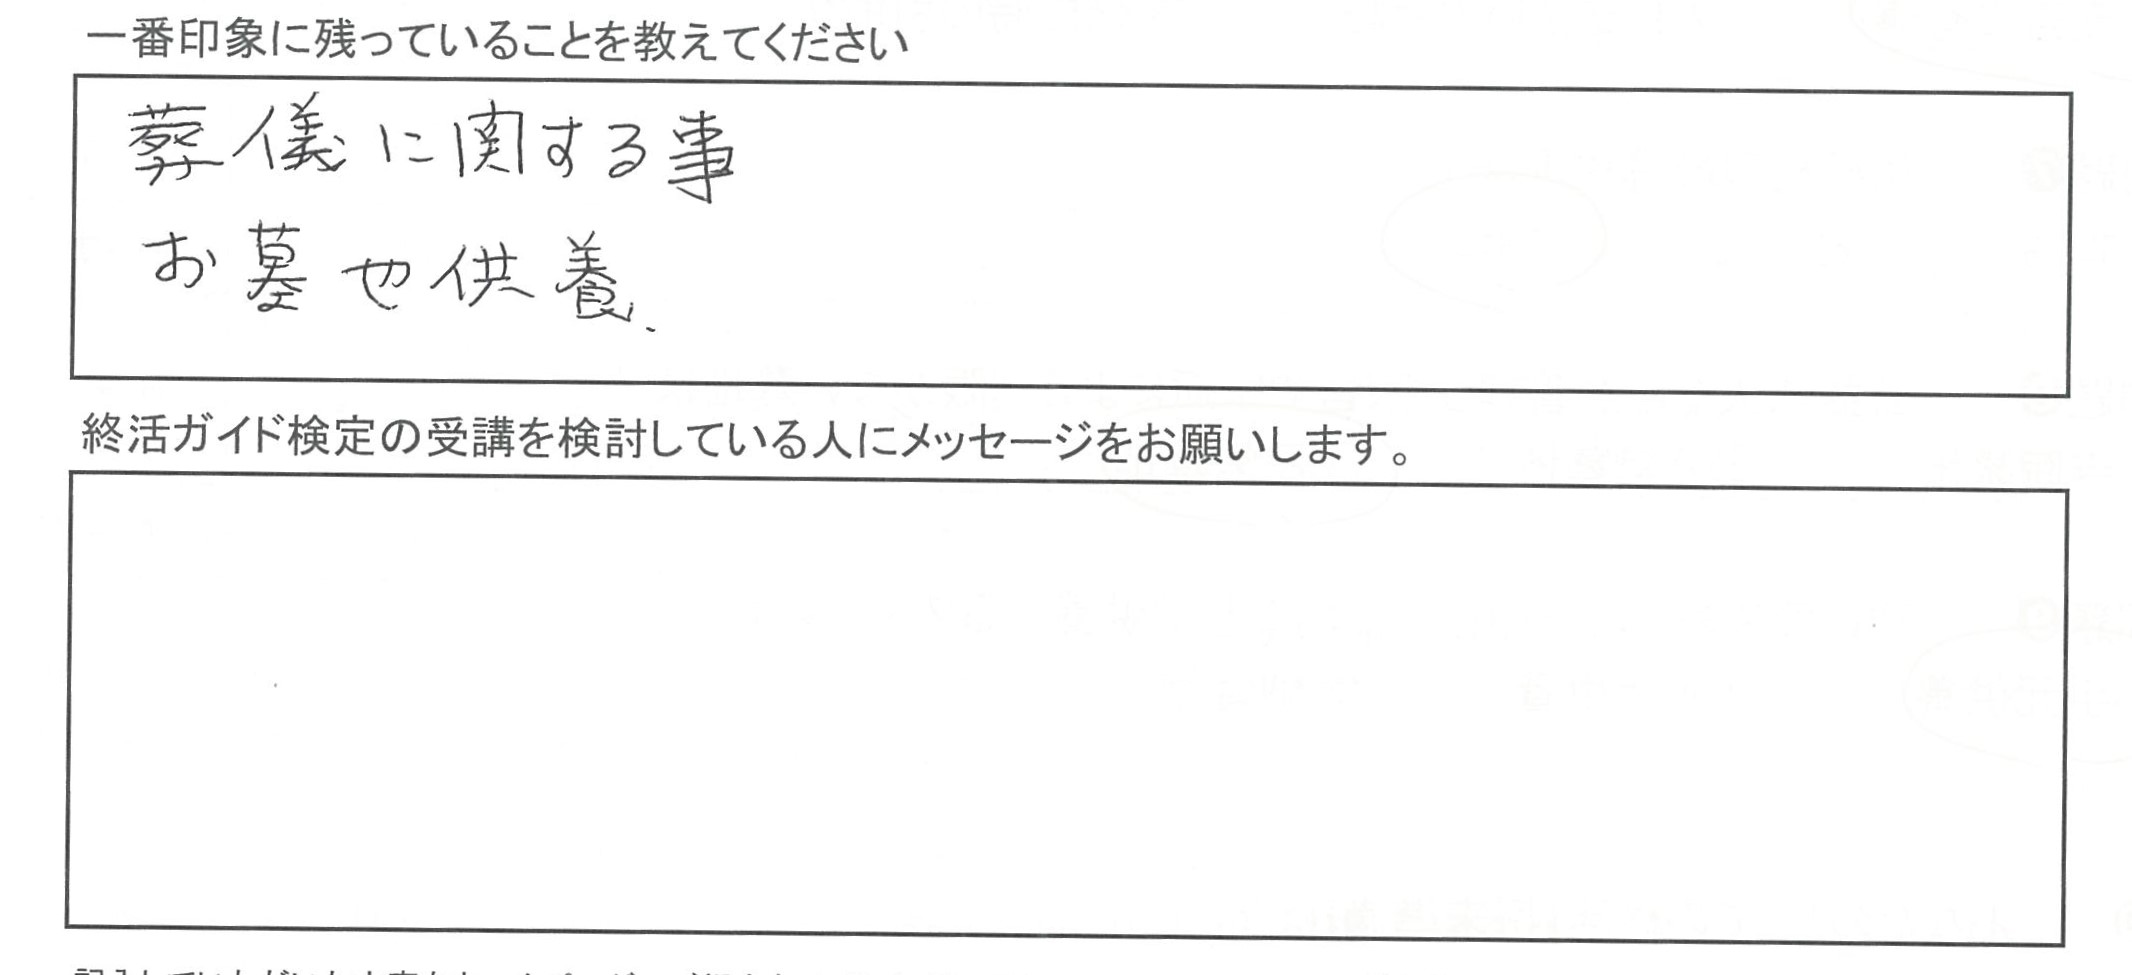 一番印象に残っていることを教えてください
葬儀に関する事
お墓や供養.
終活ガイド検定の受講を検討している人にメッセージをお願いします。